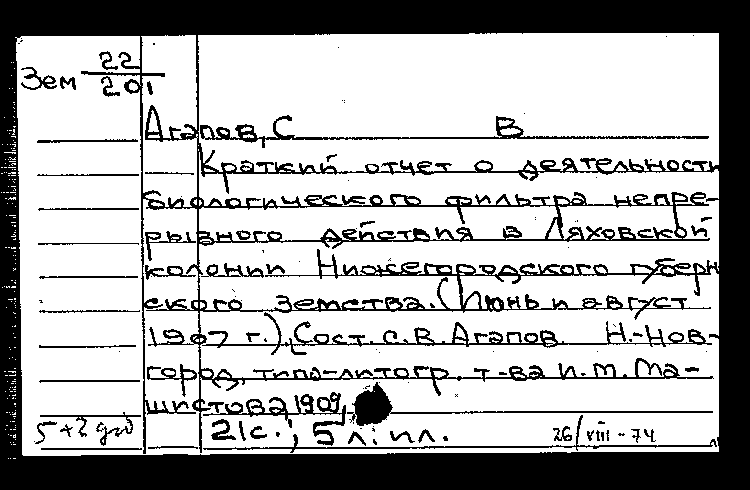 Зем 22/201
Агапов, С В
Краткий отчет о деятельности
биологического фильтра непре-
рывного действия в Ляховской
колонии Нижегородского губерн
ского земства. (Июнь и август
1907 г.). Сост. С.В. Агапов. Н.-Нов-
город, типо-литогр. т-ва И.М. Ма-
шистова, 1909,
21с.; 5 л. ил.
26/VIII-74